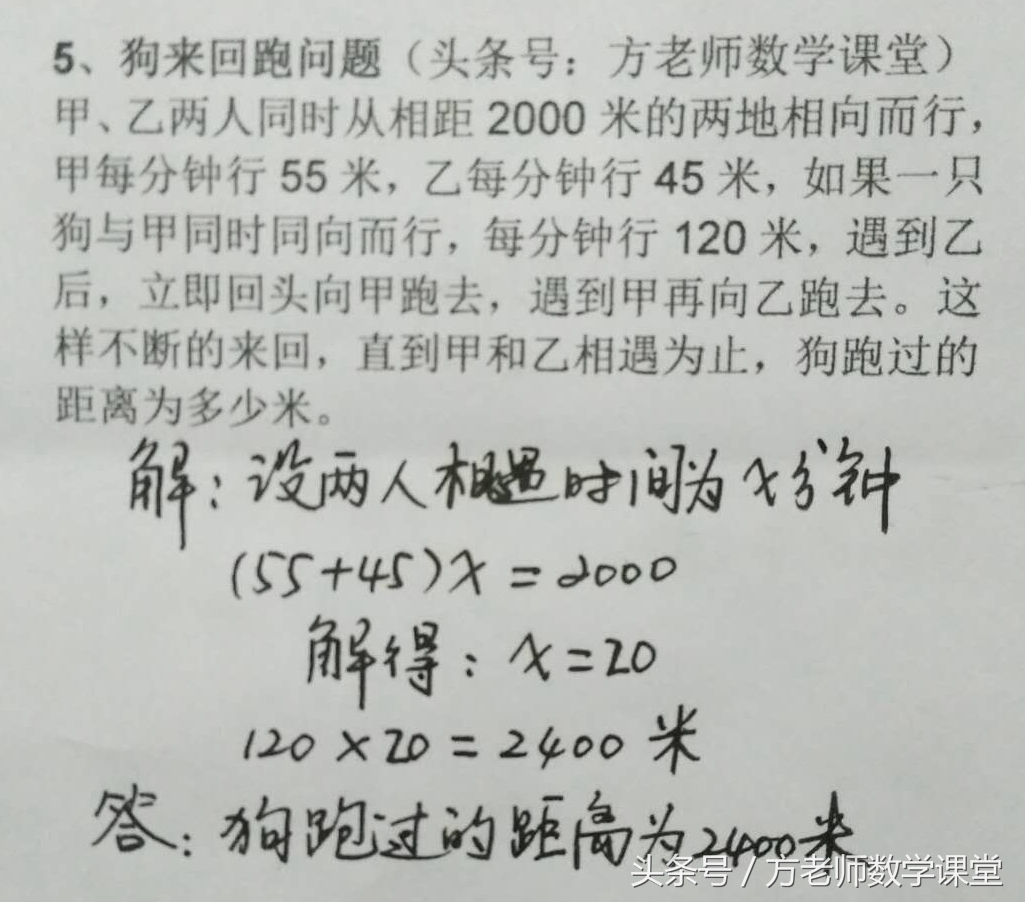 5、狗来回跑问题（头条号：方老师数学课堂）
甲、乙两人同时从相距 2000 米的两地相向而行，
甲每分钟行 55 米，乙每分钟行 45 米，如果一只
狗与甲同时同向而行，每分钟行 120 米，遇到乙
后，立即回头向甲跑去，遇到甲再向乙跑去。这
样不断的来回，直到甲和乙相遇为止，狗跑过的
距离为多少米。
解：设两人相遇时间为x分钟
(55+45)x=2000
解得：x=20
120×20=2400 米
答：狗跑过的距离为2400米
头条号 / 方老师数学课堂